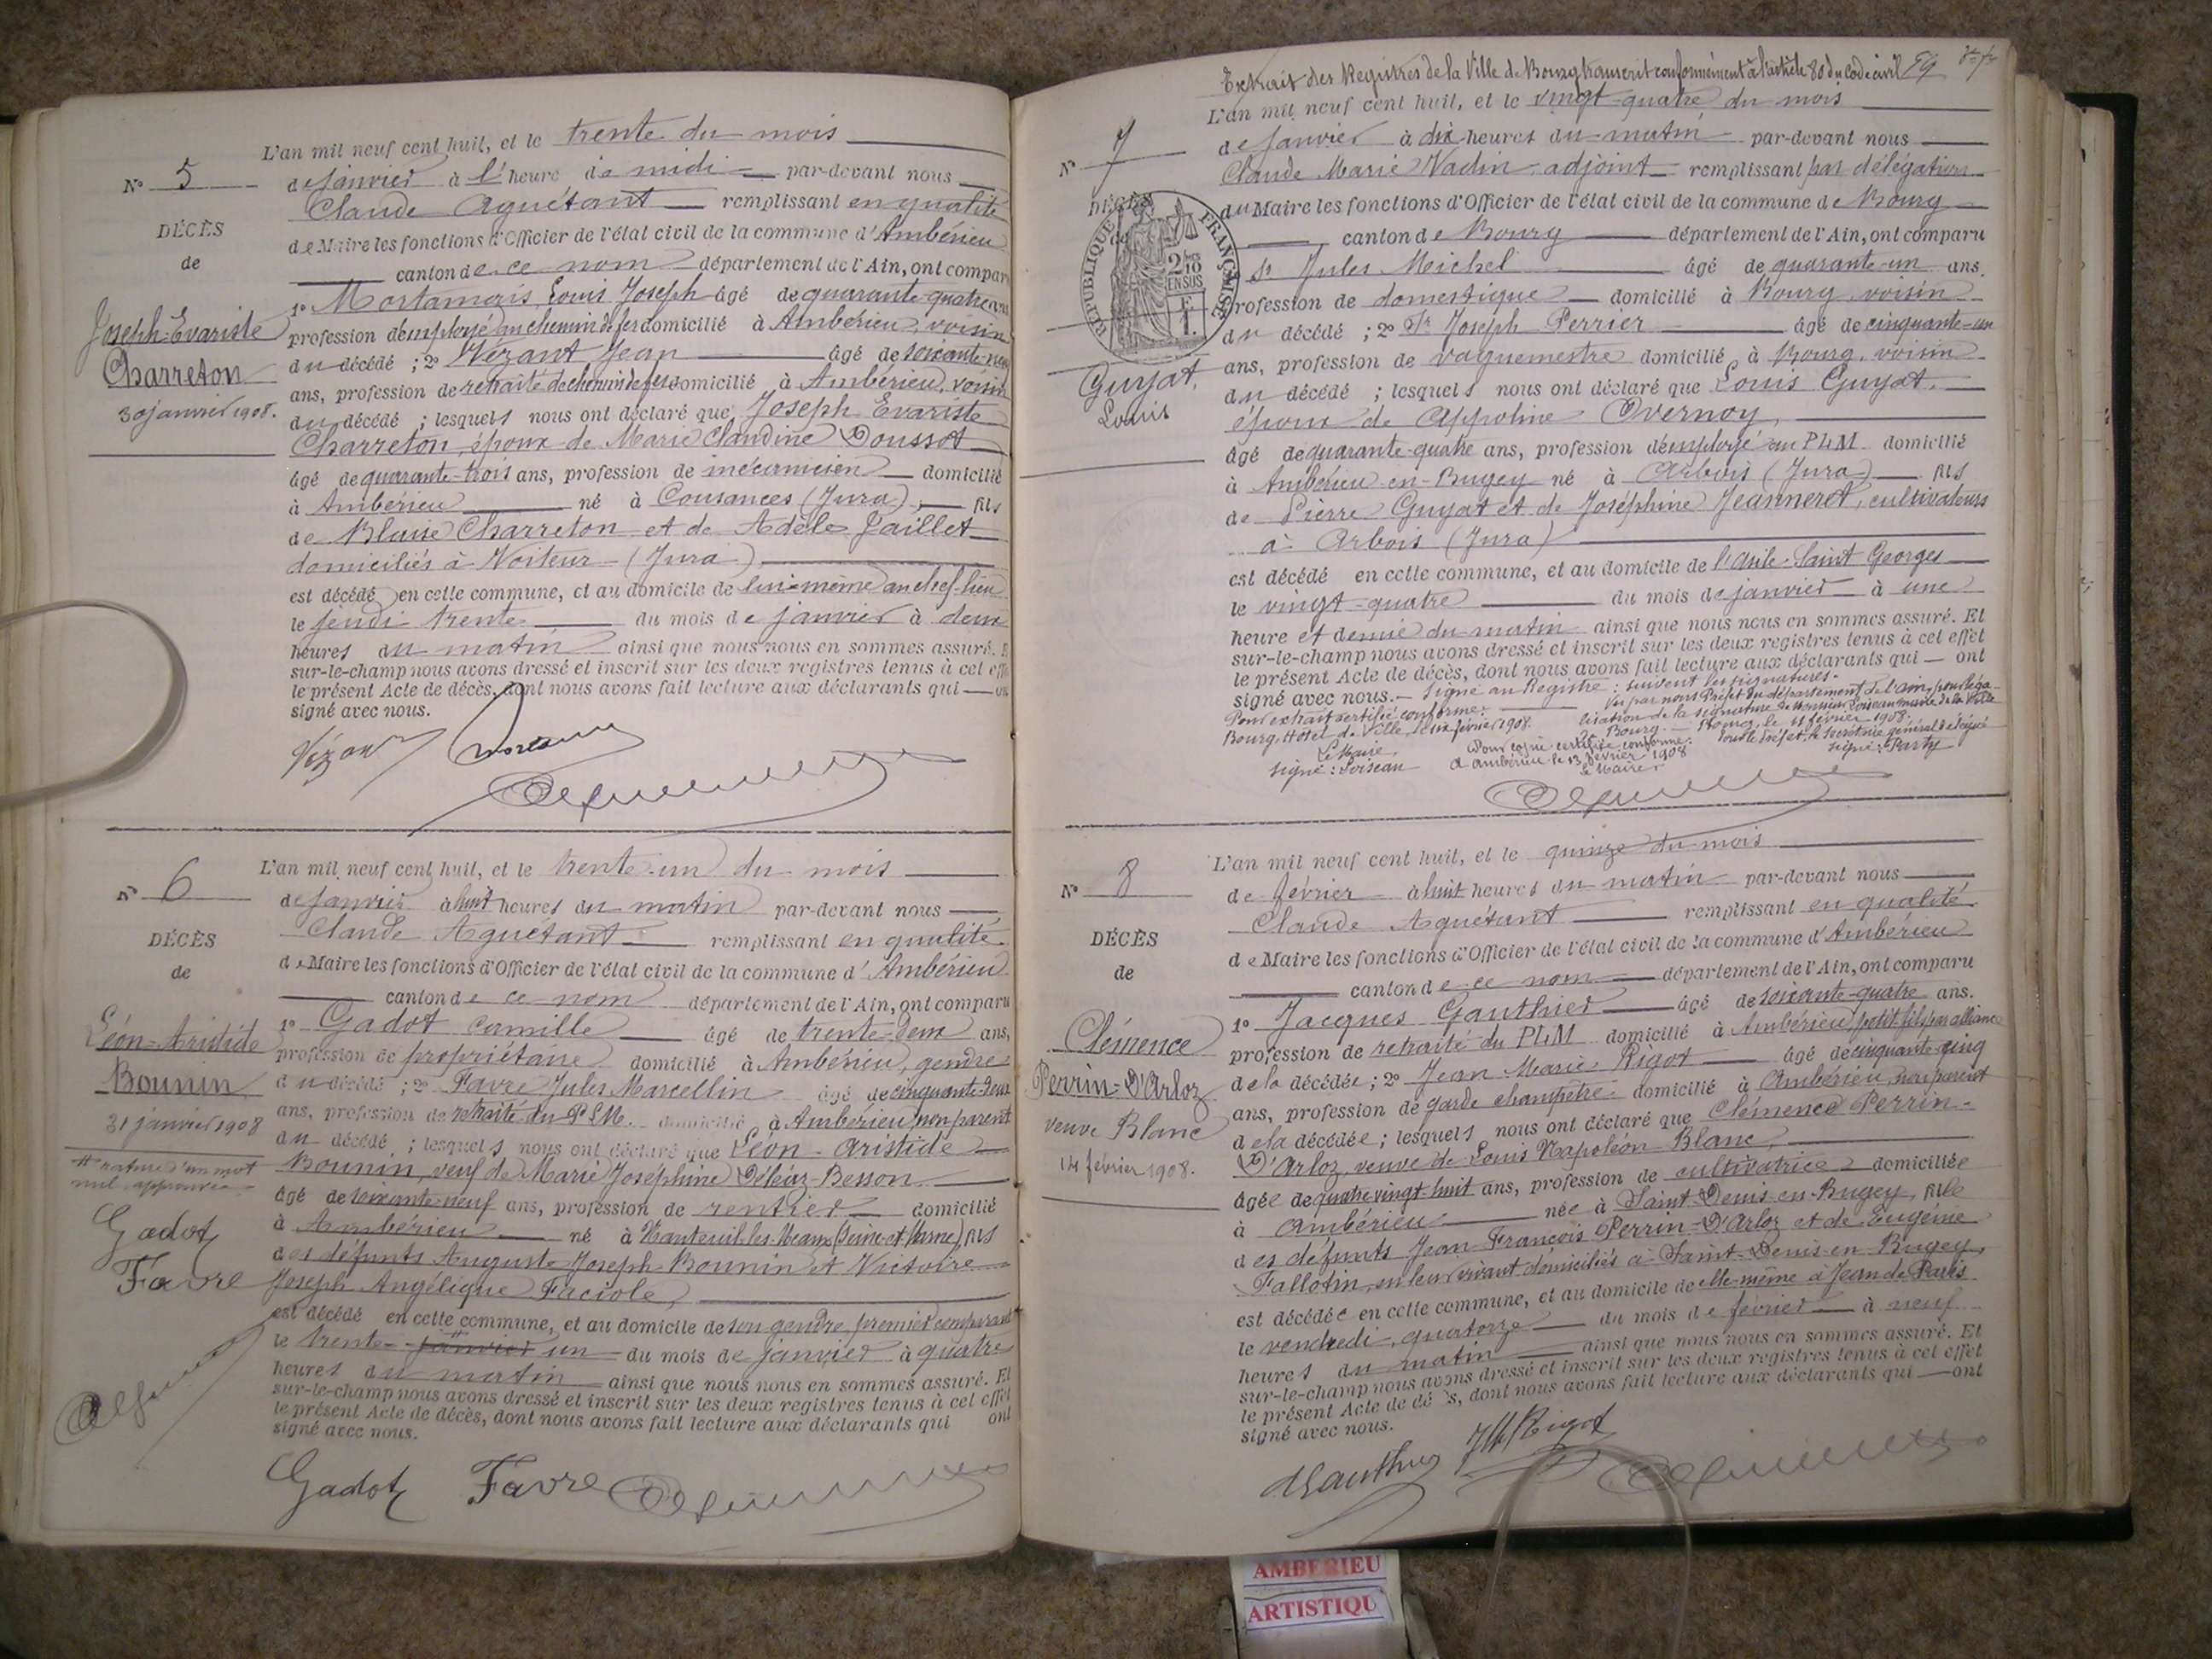 L'an mil neuf cent huit, et le trente du mois
N° 5
de janvier à l'heure de midi par-devant nous
Claude Aguétant remplissant en qualité
DÉCÈS
de Maire les fonctions d'Officier de l'état civil de la commune d'Ambérieu
de
canton de ce nom département de l'Ain, ont comparu
1° Mortamais Louis Joseph âgé de quarante-quatre ans
Joseph-Evariste
profession d'employé au chemin de fer domicilié à Ambérieu, voisin
Charreton
du décédé ; 2° Vézant Jean âgé de soixante-neuf
30 janvier 1908.
ans, profession de retraité de chemin de fer domicilié à Ambérieu, voisin
du décédé ; lesquels nous ont déclaré que Joseph Evariste
Charreton, époux de Marie Claudine Doussot
âgé de quarante-trois ans, profession de mécanicien domicilié
à Ambérieu né à Cousances (Jura), fils
de Blaise Charreton et de Adèle Jaillet
domiciliés à Voiteur (Jura)
est décédé en cette commune, et au domicile de lui-même au chef-lieu
le jeudi trente du mois de janvier à deux
heures du matin ainsi que nous nous en sommes assuré. Et
sur-le-champ nous avons dressé et inscrit sur les deux registres tenus à cet effet
le présent Acte de décès, dont nous avons fait lecture aux déclarants qui ont
signé avec nous.
Vézant
L'an mil neuf cent huit, et le trente-un du mois
N° 6
de janvier à huit heures du matin par-devant nous
Claude Aguétant remplissant en qualité
DÉCÈS
de Maire les fonctions d'Officier de l'état civil de la commune d'Ambérieu
de
canton de ce nom département de l'Ain, ont comparu
1° Gadot Camille âgé de trente-deux ans,
Léon-Aristide
profession de propriétaire domicilié à Ambérieu, gendre
Bounin
du décédé ; 2° Favre Jules Marcellin âgé de cinquante-deux
31 janvier 1908
ans, profession de retraité du P.L.M. domicilié à Ambérieu, non parent
du décédé ; lesquels nous ont déclaré que Léon-Aristide
# rature d'un mot
nul approuvée
Bounin, veuf de Marie Joséphine Déléaz-Besson
âgé de soixante-neuf ans, profession de rentier domicilié
Gadot
à Ambérieu né à Nanteuil-les-Meaux (Seine-et-Marne), fils
des défunts Auguste Joseph Bounin et Victoire
Favre
Joseph Angélique Faciole,
est décédé en cette commune, et au domicile de son gendre, premier comparant
le trente- janvier un du mois de janvier à quatre
heures du matin ainsi que nous nous en sommes assuré. Et
sur-le-champ nous avons dressé et inscrit sur les deux registres tenus à cet effet
le présent Acte de décès, dont nous avons fait lecture aux déclarants qui ont
signé avec nous.
Gadot Favre
Extrait des Registres de la Ville de Bourg transcrit conformément à l'article 80 du Code civil 59
L'an mil neuf cent huit, et le vingt-quatre du mois
N° 7
de janvier à dix heures du matin par-devant nous
Claude Marie Vadin, adjoint remplissant par délégation
DÉCÈS
du Maire les fonctions d'Officier de l'état civil de la commune de Bourg
de
canton de Bourg département de l'Ain, ont comparu
RÉPUBLIQUE FRANÇAISE
2/10 EN SUS
1 F.
Sr Jules Michel âgé de quarante-un ans.
profession de domestique domicilié à Bourg, voisin
du décédé ; 2° Sr Joseph Perrier âgé de cinquante-un
ans, profession de vaguemestre domicilié à Bourg, voisin
Guyat,
Louis
du décédé ; lesquels nous ont déclaré que Louis Guyat,
époux de Appoline Overnoy,
âgé de quarante-quatre ans, profession d'employé au PLM domicilié
à Ambérieu-en-Bugey né à Arbois (Jura) fils
de Pierre Guyat et de Joséphine Jeanneret, cultivateurs
à Arbois (Jura)
est décédé en cette commune, et au domicile de l'asile-Saint Georges
le vingt-quatre du mois de janvier à une
heure et demie du matin ainsi que nous nous en sommes assuré. Et
sur-le-champ nous avons dressé et inscrit sur les deux registres tenus à cet effet
le présent Acte de décès, dont nous avons fait lecture aux déclarants qui ont
signé avec nous. Signé au Registre : suivent les signatures.
Pour extrait certifié conforme.
Bourg, Hôtel de Ville, le dix février 1908.
Le Maire
signé : Loiseau
Vu par nous Préfet du département de l'Ain, pour léga-
lisation de la signature de Monsieur Loiseau maire de la Ville
de Bourg. Bourg, le 11 février 1908.
Pour le Préfet, le secrétaire général délégué
signé : Party
Pour copie certifiée conforme.
à Ambérieu le 13 février 1908
Le Maire
L'an mil neuf cent huit, et le quinze du mois
N° 8
de février à huit heures du matin par-devant nous
Claude Aguétant remplissant en qualité
DÉCÈS
de Maire les fonctions d'Officier de l'état civil de la commune d'Ambérieu
de
canton de ce nom département de l'Ain, ont comparu
1° Jacques Gauthier âgé de soixante-quatre ans.
Clémence
profession de retraité du PLM domicilié à Ambérieu petit fils par alliance
Perrin-D'Arloz
de la décédée ; 2° Jean Marie Rigot âgé de cinquante-cinq
veuve Blanc
ans, profession de garde champêtre domicilié à Ambérieu, non parent
14 février 1908.
de la décédée ; lesquels nous ont déclaré que Clémence Perrin-
D'Arloz, veuve de Louis Napoléon Blanc,
âgée de quatre vingt-huit ans, profession de cultivatrice domiciliée
à Ambérieu née à Saint-Denis-en-Bugey, fille
des défunts Jean-François Perrin-D'Arloz et de Eugénie
Fallotin, en leur vivant domiciliés à Saint-Denis-en-Bugey,
est décédée en cette commune, et au domicile de elle-même à Jean de Paris
le vendredi, quatorze du mois de février à neuf
heures du matin ainsi que nous nous en sommes assuré. Et
sur-le-champ nous avons dressé et inscrit sur les deux registres tenus à cet effet
le présent Acte de décès, dont nous avons fait lecture aux déclarants qui ont
signé avec nous.
Gauthier JM Rigot
AMBERIEU
ARTISTIQU